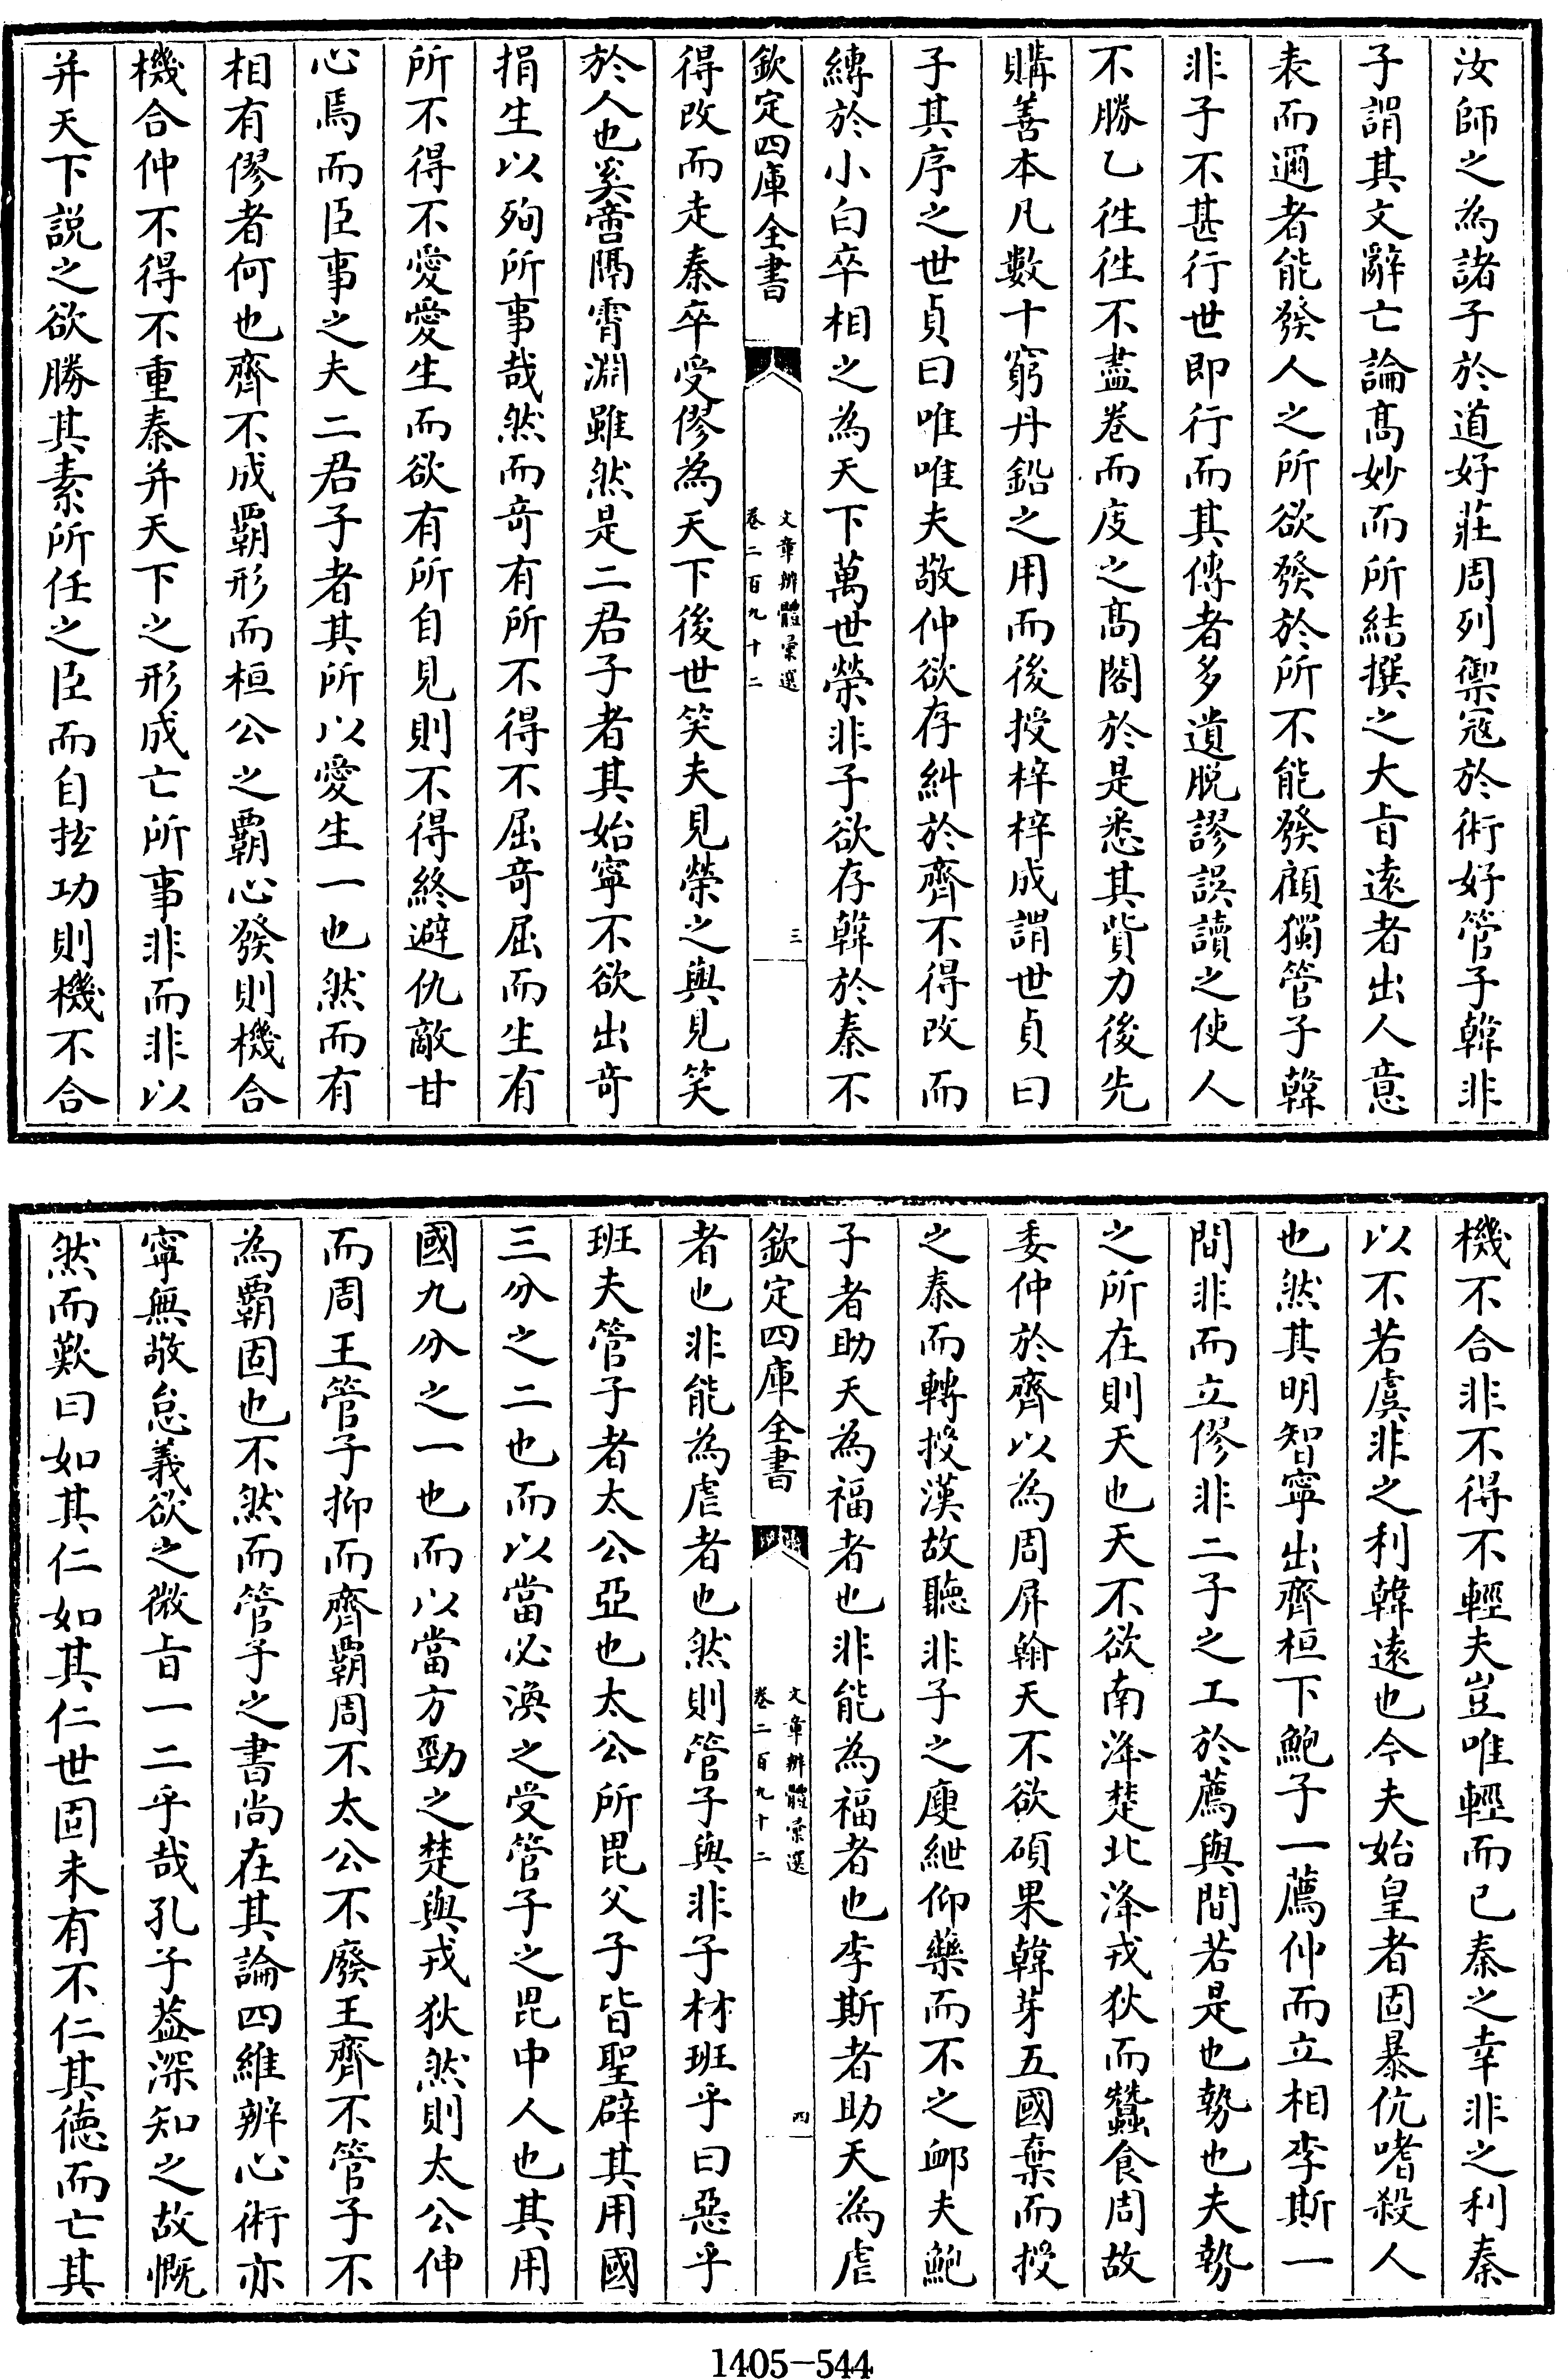 汝師之為諸子於道好莊周列禦冦於術好管子韓非
子謂其文辭亡論髙妙而所結撰之大㫖遠者出人意
表而邇者能發人之所欲發於所不能發顧獨管子韓
非子不甚行世即行而其傳者多遺脱謬誤讀之使人
不勝乙徃徃不盡卷而庋之髙閣於是悉其貲力後先
購善本凡數十窮丹鉛之用而後授梓梓成謂世貞曰
子其序之世貞曰唯唯夫敬仲欲存糾於齊不得改而
縛於小白卒相之為天下萬世榮非子欲存韓於秦不
欽定四庫全書
文章辨體彙選
卷二百九十二
三
得改而走秦卒受僇為天下後世笑夫見榮之與見笑
於人也奚啻隔霄淵雖然是二君子者其始寧不欲出竒
捐生以殉所事哉然而竒有所不得不屈竒屈而生有
所不得不愛愛生而欲有所自見則不得終避仇敵甘
心焉而臣事之夫二君子者其所以愛生一也然而有
相有僇者何也齊不成覇形而桓公之覇心發則機合
機合仲不得不重秦并天下之形成亡所事非而非以
并天下説之欲勝其素所任之臣而自抂功則機不合
機不合非不得不輕夫豈唯輕而已秦之幸非之利秦
以不若虞非之利韓遠也今夫始皇者固暴伉嗜殺人
也然其明智寧出齊桓下鮑子一薦仲而立相李斯一
間非而立僇非二子之工於薦與間若是也勢也夫勢
之所在則天也天不欲南洚楚北洚戎狄而蠶食周故
委仲於齊以為周屏翰天不欲碩果韓芽五國棄而授
之秦而轉授漢故聽非子之廋紲仰藥而不之䘏夫鮑
子者助天為福者也非能為福者也李斯者助天為虐
欽定四庫全書
文章辨體彙選
卷二百九十二
四
者也非能為虐者也然則管子與非子材班乎曰惡乎
班夫管子者太公亞也太公所毘父子皆聖辟其用國
三分之二也而以當必渙之受管子之毘中人也其用
國九分之一也而以當方勁之楚與戎狄然則太公伸
而周王管子抑而齊覇周不太公不廢王齊不管子不
為覇固也不然而管子之書尚在其論四維辨心術亦
寧無敬怠義欲之微㫖一二乎哉孔子葢深知之故慨
然而歎曰如其仁如其仁世固未有不仁其徳而亡其
1405-544